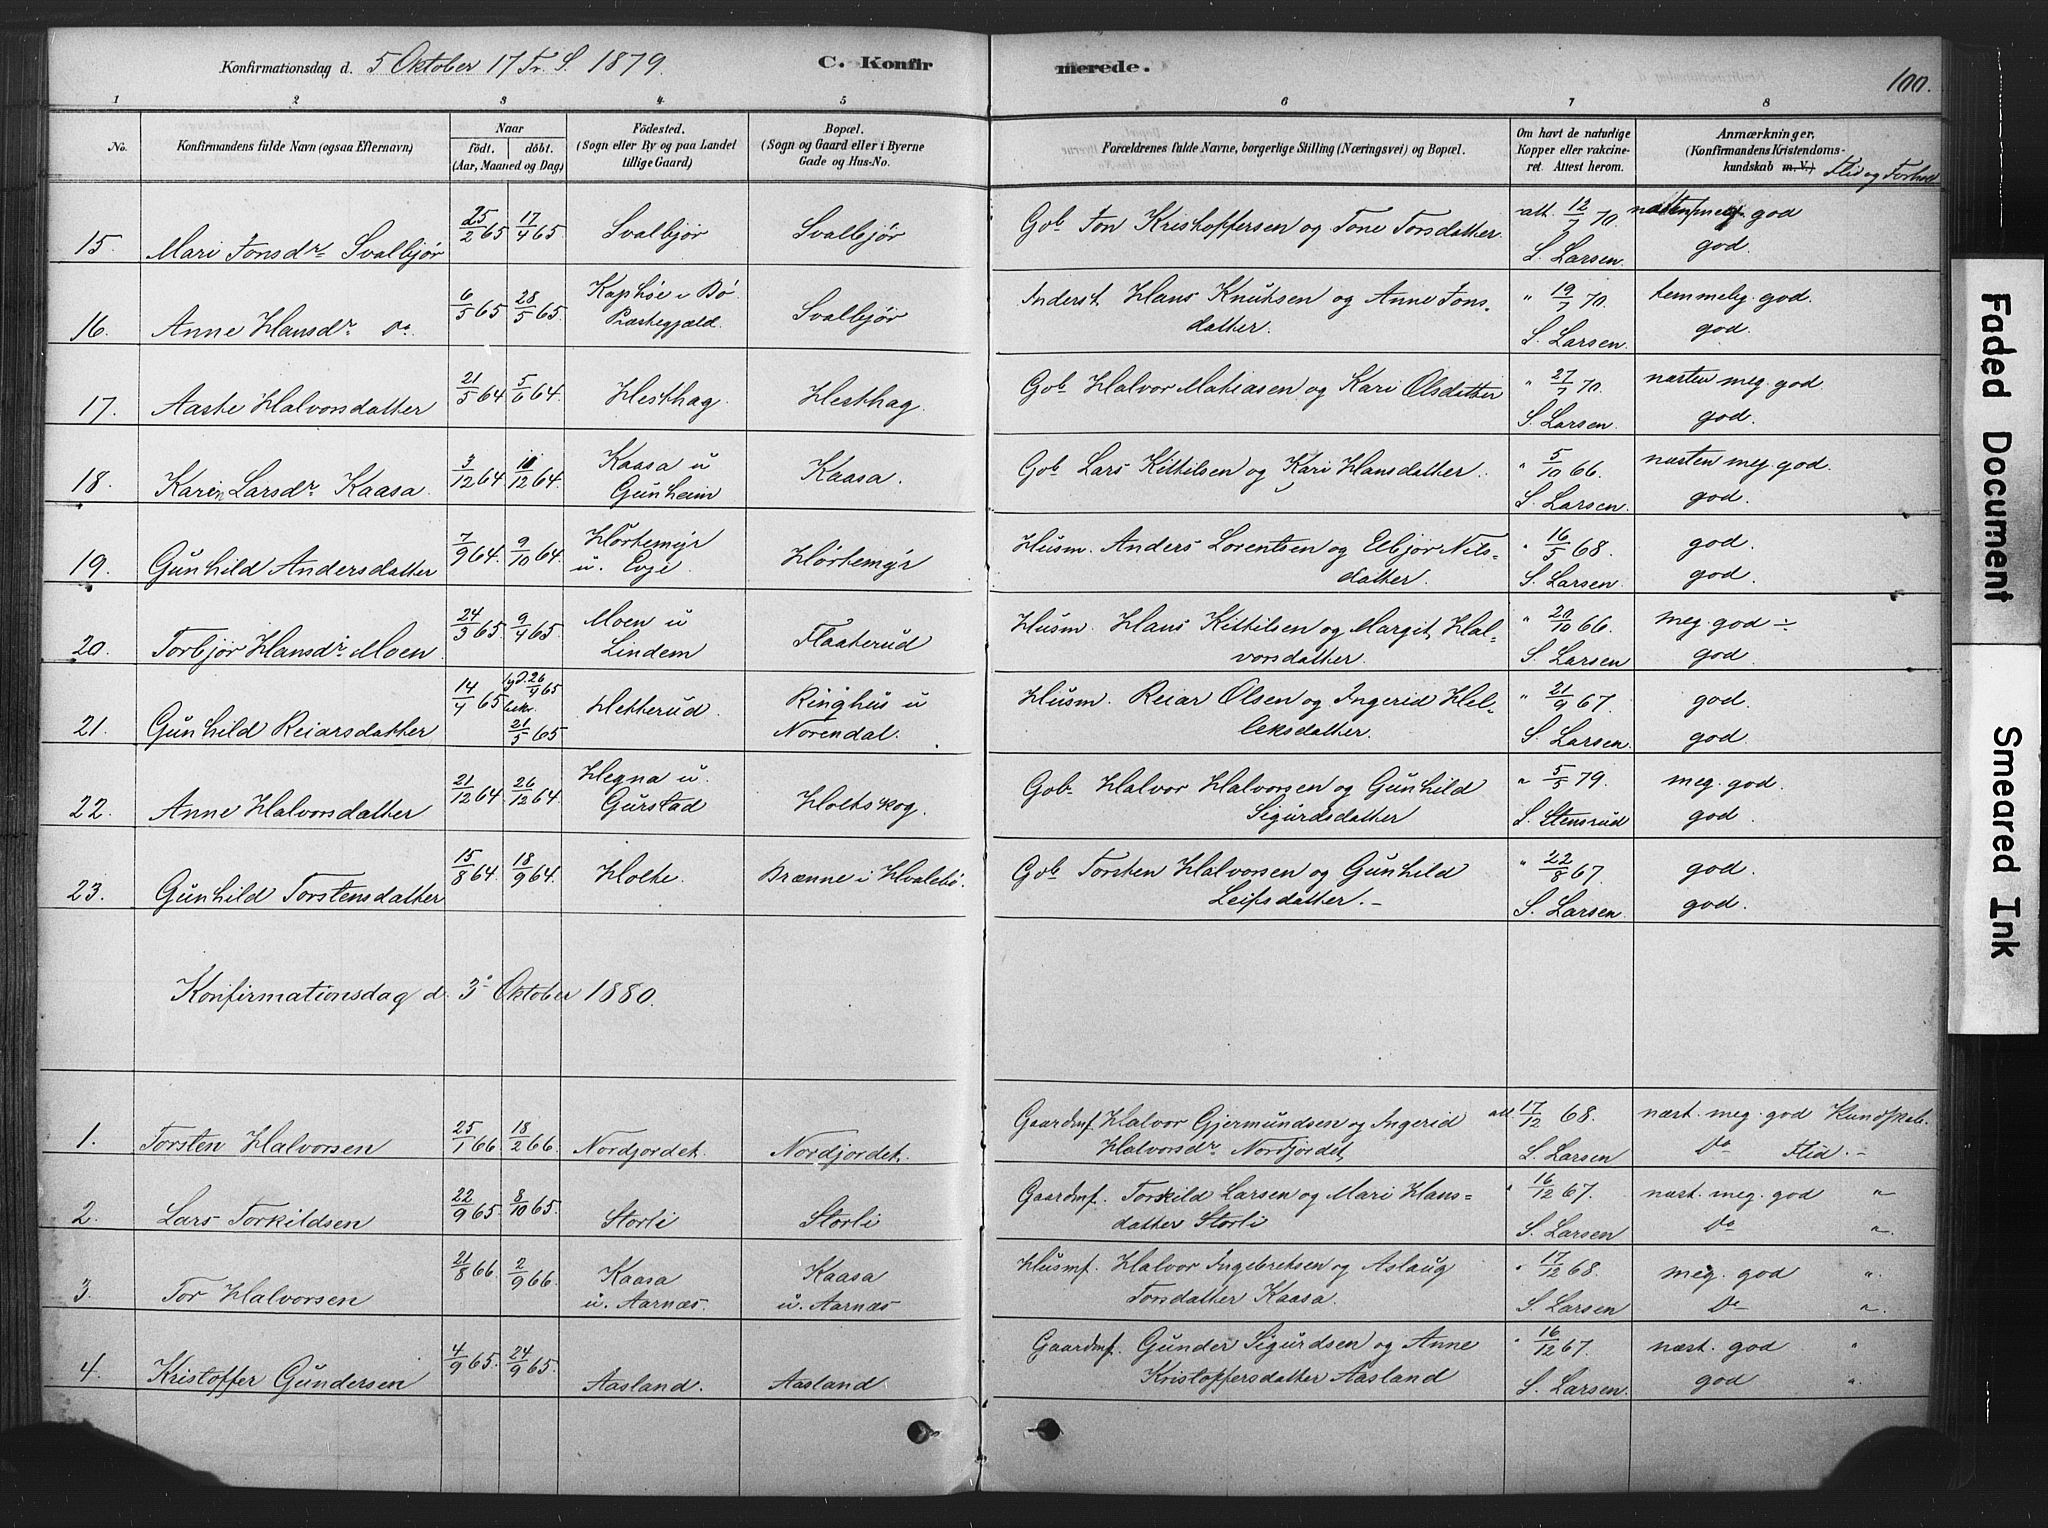 Konfirmationsdag d. 5 Oktober 17 Tr. S. 1879. C. Konfirmerede. 100.
1 2 3 4 5 6 7 8
No. Konfirmandens fulde Navn (ogsaa Efternavn) Naar födt. döbt. (Aar, Maaned og Dag) Födested. (Sogn eller By og paa Landet tillige Gaard) Bopæl. (Sogn og Gaard eller i Byerne Gade og Hus-No. Forældrenes fulde Navne, borgerlige Stilling (Næringsvei) og Bopæl. Om havt de naturlige Kopper eller vakcineret. Attest herom. Anmærkninger. (Konfirmandens Kristendomskundskab m. V.) Flid og Forhold
15. Mari Jonsdr Svalbjør 25/2 65 17/4 65 Svalbjør Svalbjør Gob Jon Kristoffersen og Tone Torsdatter. att. 12/7 70. S. Larsen. næsten meg. god god.
16. Anne Hansdr do 6/5 65 28/5 65 Kaphøe i Bø Præstegjæld. Svalbjør Inderst. Hans Knutsen og Anne Jonsdatter. " 19/7 70. S. Larsen. temmelig god. god.
17. Aaste Halvorsdatter 21/5 64 5/6 64. Hesthag Hesthag Gob Halvor Matiasen og Kari Olsdatter " 27/7 70. S. Larsen. næsten meg. god god.
18. Karin Larsdr Kaasa. 3/12 64 11/12 64. Kaasa u Gunheim Kaasa. Gob Lars Kittilsen og Kari Hansdatter. " 5/10 66. S. Larsen næsten meg. god. god.
19. Gunhild Andersdatter 7/9 64. 9/10 64 Hørtemyr u. Evje. Hørtemyr Husm. Anders Lorentsen og Elbjør Nilsdatter. " 16/5 68. S. Larsen god. god.
20. Torbjør Hansdr Moen 24/3 65 9/4 65. Moen u Lindem Flaaterud Husm. Hans Kittilsen og Margit Halvorsdatter. " 20/10 66. S. Larsen meg. god ÷ god.
21. Gunhild Reiarsdatter 14/4 65 hjd. 26/4 65 bek. 21/5 65 Hetterud. Ringhus u Norendal. Husm. Reiar Olsen og Ingerid Helleksdatter. " 21/9 67. S. Larsen. god. god.
22. Anne Halvorsdatter 21/12 64 26/12 64. Hegna u. Gurstad Holtskog. Gob. Halvor Halvorsen og Gunhild Sigurdsdatter " 5/5 79. S. Stensrud meg. god. god.
23. Gunhild Torstensdatter 15/8 64. 18/9 64. Holte. Brænne i Hvalebø. Gob Torsten Halvorsen og Gunhild Leifsdatter. " 22/8 67. S. Larsen. god. god.
Konfirmationsdag d. 3 Oktober 1880.
1. Torsten Halvorsen 25/1 66 18/2 66. Nordjordet. Nordjordet. Gaardmf. Halvor Gjermundsen og Ingerid Halvorsdr Nordjordet att 17/12 68. S. Larsen næst. meg. god Kundskab. Do Flid.
2. Lars Torkildsen 22/9 65. 8/10 65. Storli Storli Gaardmf. Torkild Larsen og Mari Hansdatter Storli " 16/12 67. S. Larsen næst. meg. god " Do "
3. Tor Halvorsen 21/8 66. 2/9 66. Kaasa u. Aarnæs. Kaasa u. Aarnæs Husmf. Halvor Ingebretsen og Aslaug Torsdatter Kaasa. " 17/12 68. S. Larsen meg. god " Do "
4. Kristoffer Gundersen 4/9 65. 24/9 65. Aasland. Aasland Gaardmf. Gunder Sigurdsen og Anne Kristoffersdatter Aasland " 16/12 67. S. Larsen. næst. god " god "
Faded Document
Smeared Ink